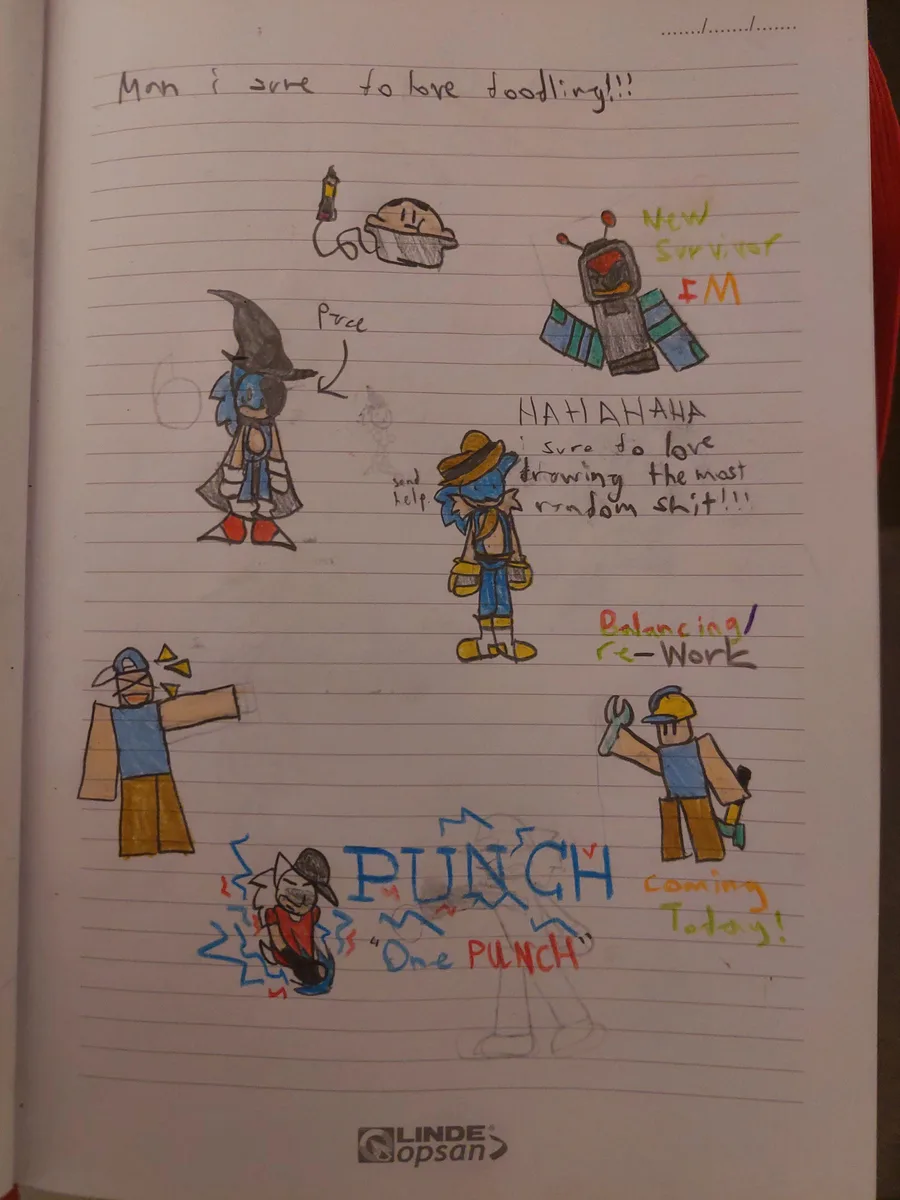 ......./......./.......
Man i sure to love toodling!!!
New
Survivor
IM
Pure
6
HAHAHAHA
i sure to love
drawing the most
random shit!!!
send
help.
Balancing/
re-Work
PUNCH
"One PUNCH"
coming
Today!
LINDE
opsan